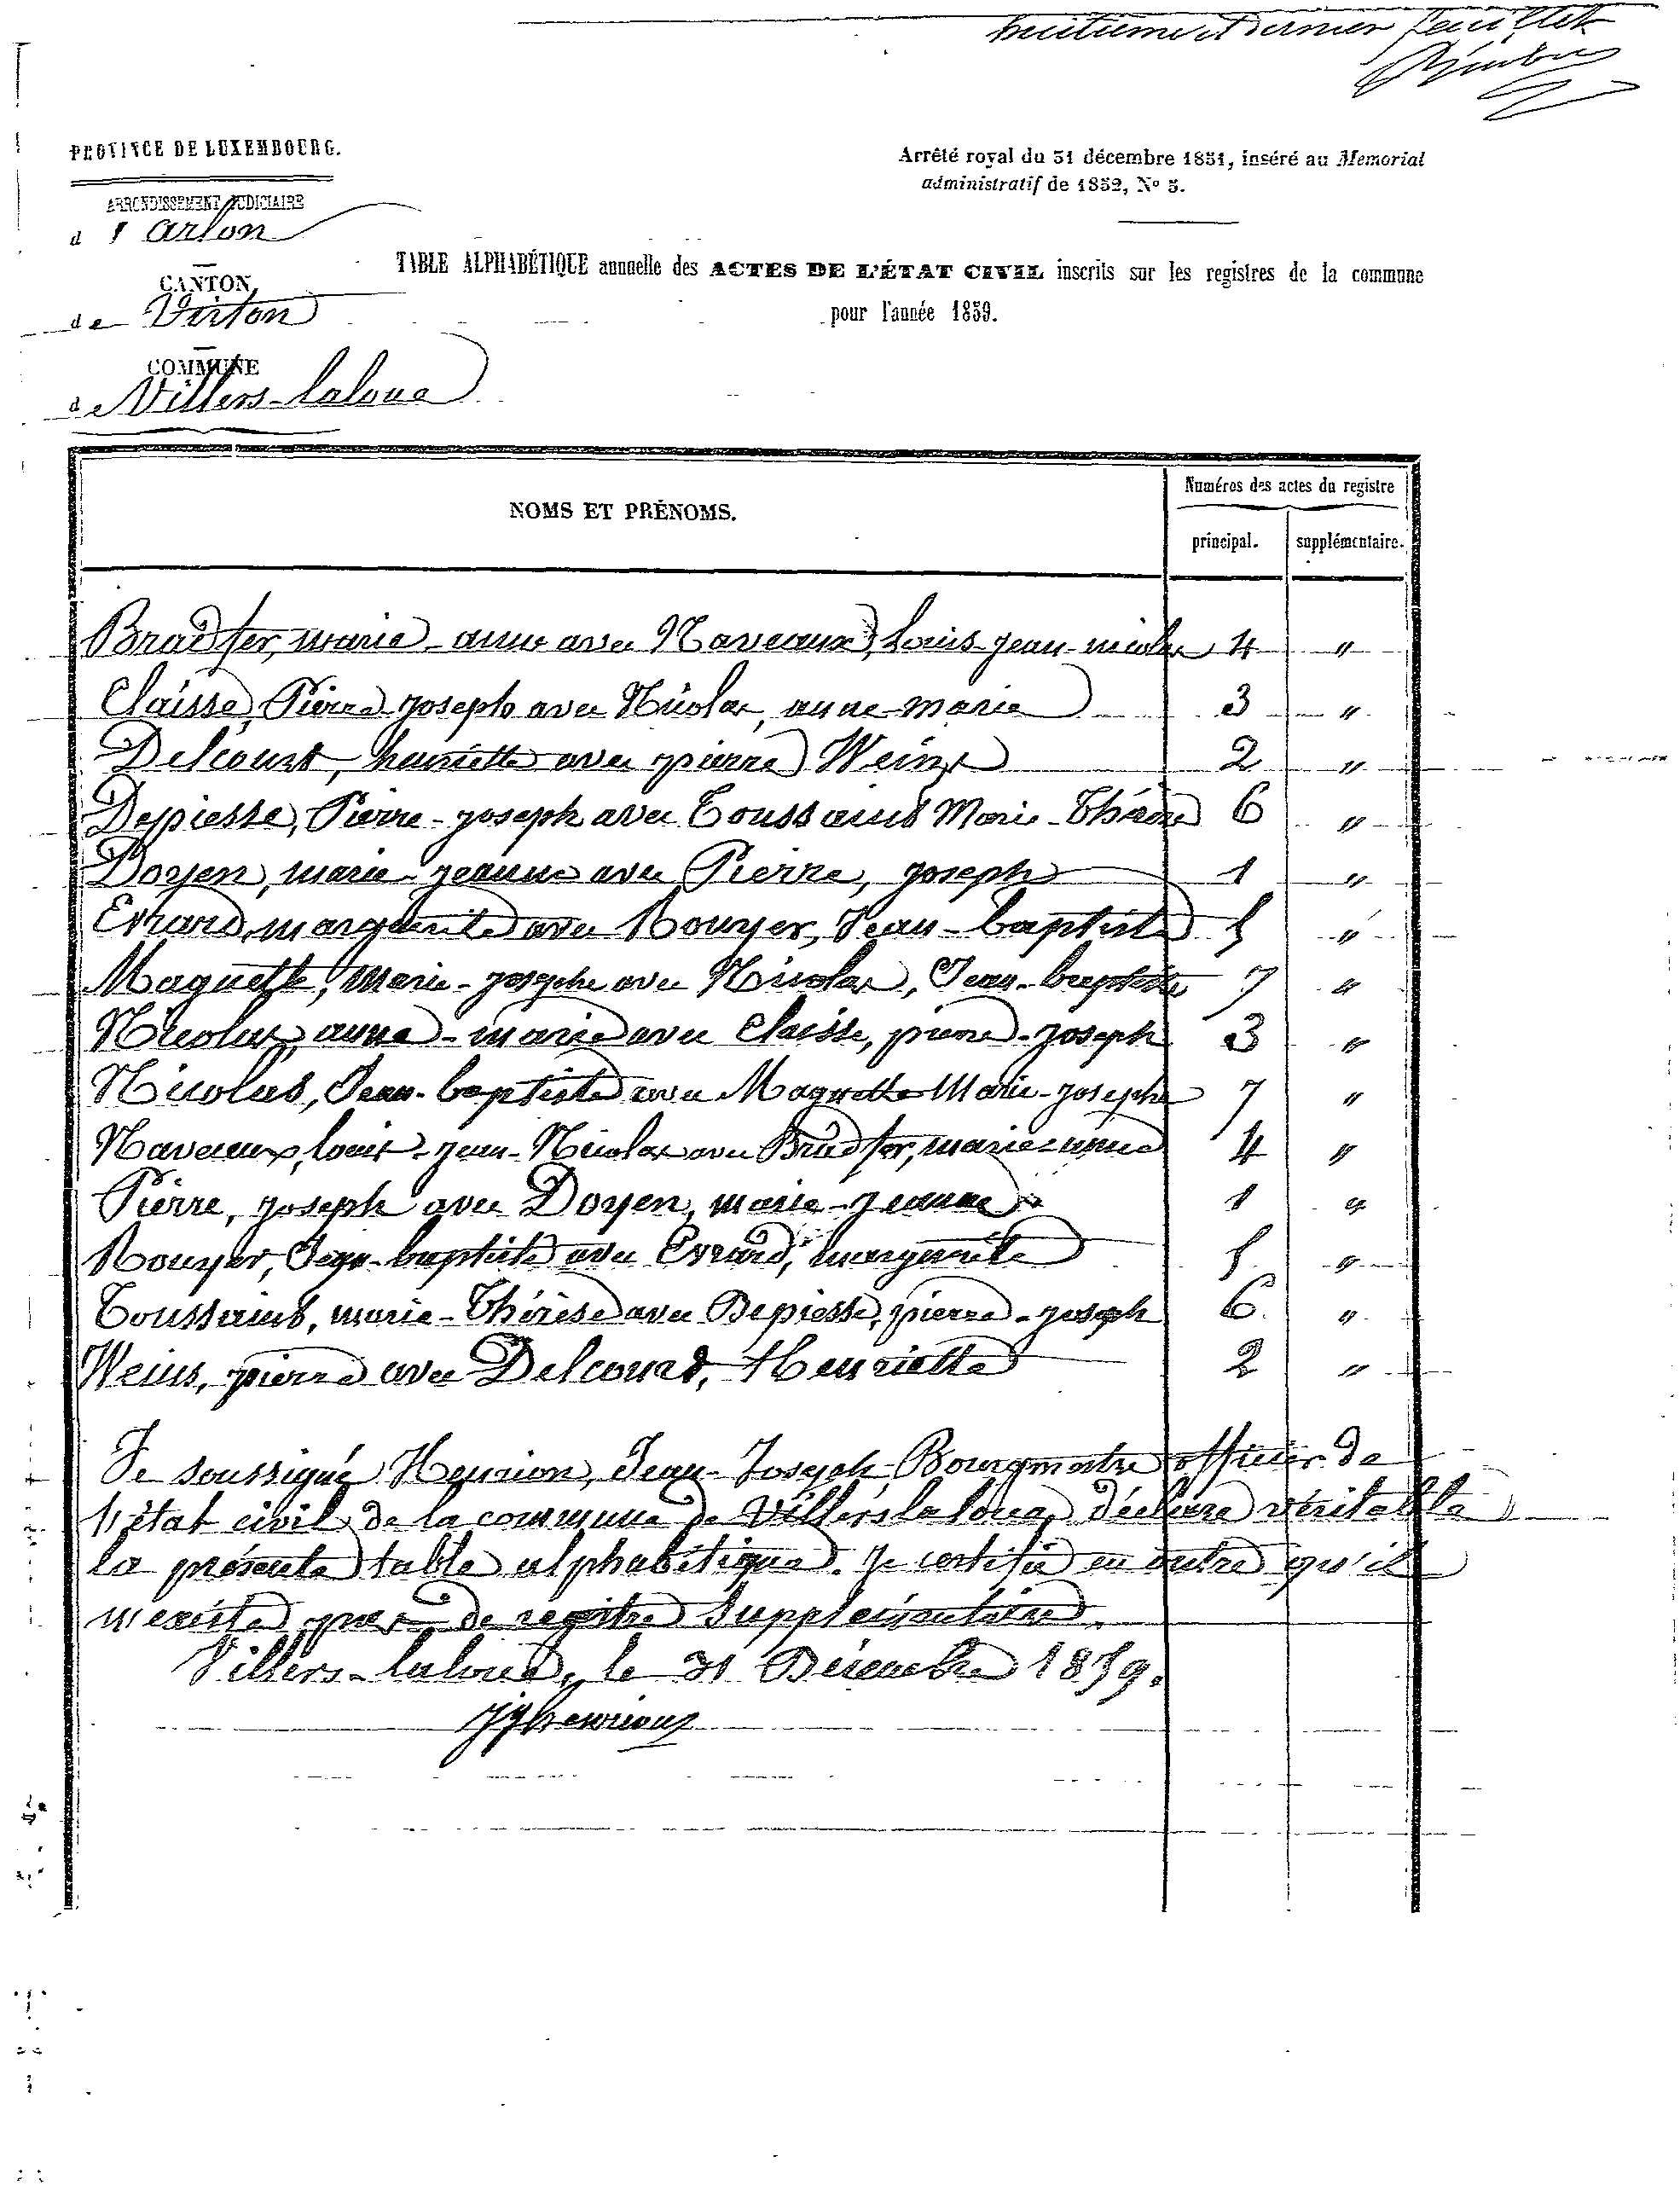 huitième et dernier feuillet
PROVINCE DE LUXEMBOURG.
Arrêté royal du 31 décembre 1851, inséré au Memorial
administratif de 1852, No 5.
ARRONDISSEMENT JUDICIAIRE
d'Arlon
CANTON
de Virton
COMMUNE
de Villers-laloue
TABLE ALPHABÉTIQUE annuelle des ACTES DE L'ÉTAT CIVIL inscrits sur les registres de la commune
pour l'année 1859.
NOMS ET PRÉNOMS.
Numéros des actes du registre
principal. supplémentaire.
Bradfer, marie-anne avec Naveaux, Louis-jean-nicolas 4 "
Claisse, Pierre joseph avec Nicolas, anne-marie 3 "
Delcourt, henriette avec pierre Weins 2 "
Depiesse, Pierre-joseph avec Toussaint Marie-Thérèse 6 "
Doyen, marie-jeanne avec Pierre, joseph 1 "
Evrard, marguerite avec Rouyer, Jean-baptiste 5 "
Maquette, Marie-josephe avec Nicolas, Jean-baptiste 7 "
Nicolas, anne-marie avec Claisse, pierre-joseph 3 "
Nicolas, Jean-baptiste avec Maquette Marie-josephe 7 "
Naveaux, louis-jean-Nicolas avec Bradfer, marie-anne 4 "
Pierre, joseph avec Doyen, marie-jeanne 1 "
Rouyer, Jean-baptiste avec Evrard, marguerite 5 "
Toussaint, marie-Thérèse avec Depiesse, pierre-joseph 6 "
Weins, pierre avec Delcourt, Henriette 2 "
Je soussigné Henrion, Jean-Joseph Bourgmestre officier de
l'état civil de la commune de Villers laloue, déclare véritable
la présente table alphabétique. Je certifie en outre qu'il
n'existe pas de registre Supplémentaire.
Villers-laloue, le 31 Décembre 1859.
JJhenrion